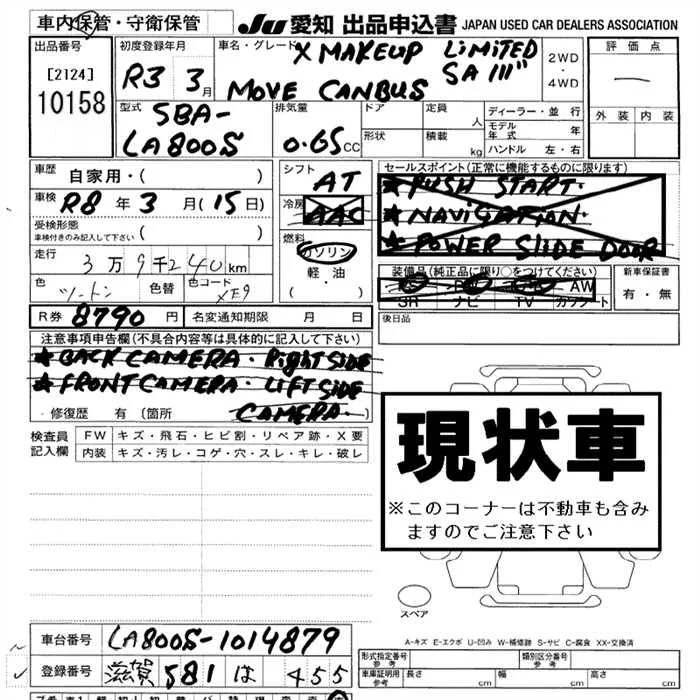 車内保管・守衛保管
JU 愛知 出品申込書 JAPAN USED CAR DEALERS ASSOCIATION
出品番号
[2124]
10158
初度登録年月
R3 3月
車名・グレード
X MAKEUP LIMITED
SA III
MOVE CANBUS
2WD
・
4WD
評価点
外装 内装
型式
5BA-
LA800S
排気量
0.65 CC
ドア
形状
定員
人
積載
kg
ディーラー・並行
モデル年式 年
ハンドル 左・右
車歴
自家用・( )
車検
R8 年 3 月(15日)
受検形態
車検付きのみ記入して下さい ( )
走行
3万9千240km
色
ツートン
色替
色コード
XE9
シフト
AT
冷房
AAC
燃料
ガソリン
軽油
( ・ )
セールスポイント(正常に機能するものに限ります)
★ PUSH START.
★ NAVIGATION.
★ POWER SLIDE DOOR
装備品(純正品に限り○をつけてください)
AW
SR ナビ TV カワシート
新車保証書
有・無
R券 8790 円
名変通知期限 月 日
後日品
注意事項申告欄(不具合内容等は具体的に記入して下さい)
★ BACK CAMERA. Right SIDE
★ FRONT CAMERA. LIFT SIDE
CAMERA.
・修復歴 有 (箇所
検査員
記入欄
FW キズ・飛石・ヒビ割・リペア跡・X要
内装 キズ・汚レ・コゲ・穴・スレ・キレ・破レ
現状車
※このコーナーは不動車も含み
ますのでご注意下さい
スペア
A-キズ E-エクボ U-凹み W-補修跡 S-サビ C-腐食 XX-交換済
車台番号 LA800S-1014879
登録番号 滋賀 581 は 455
形式指定番号
参考
類別区分番号
参考
車庫証明用
参考
長さ cm 幅 cm 高さ cm